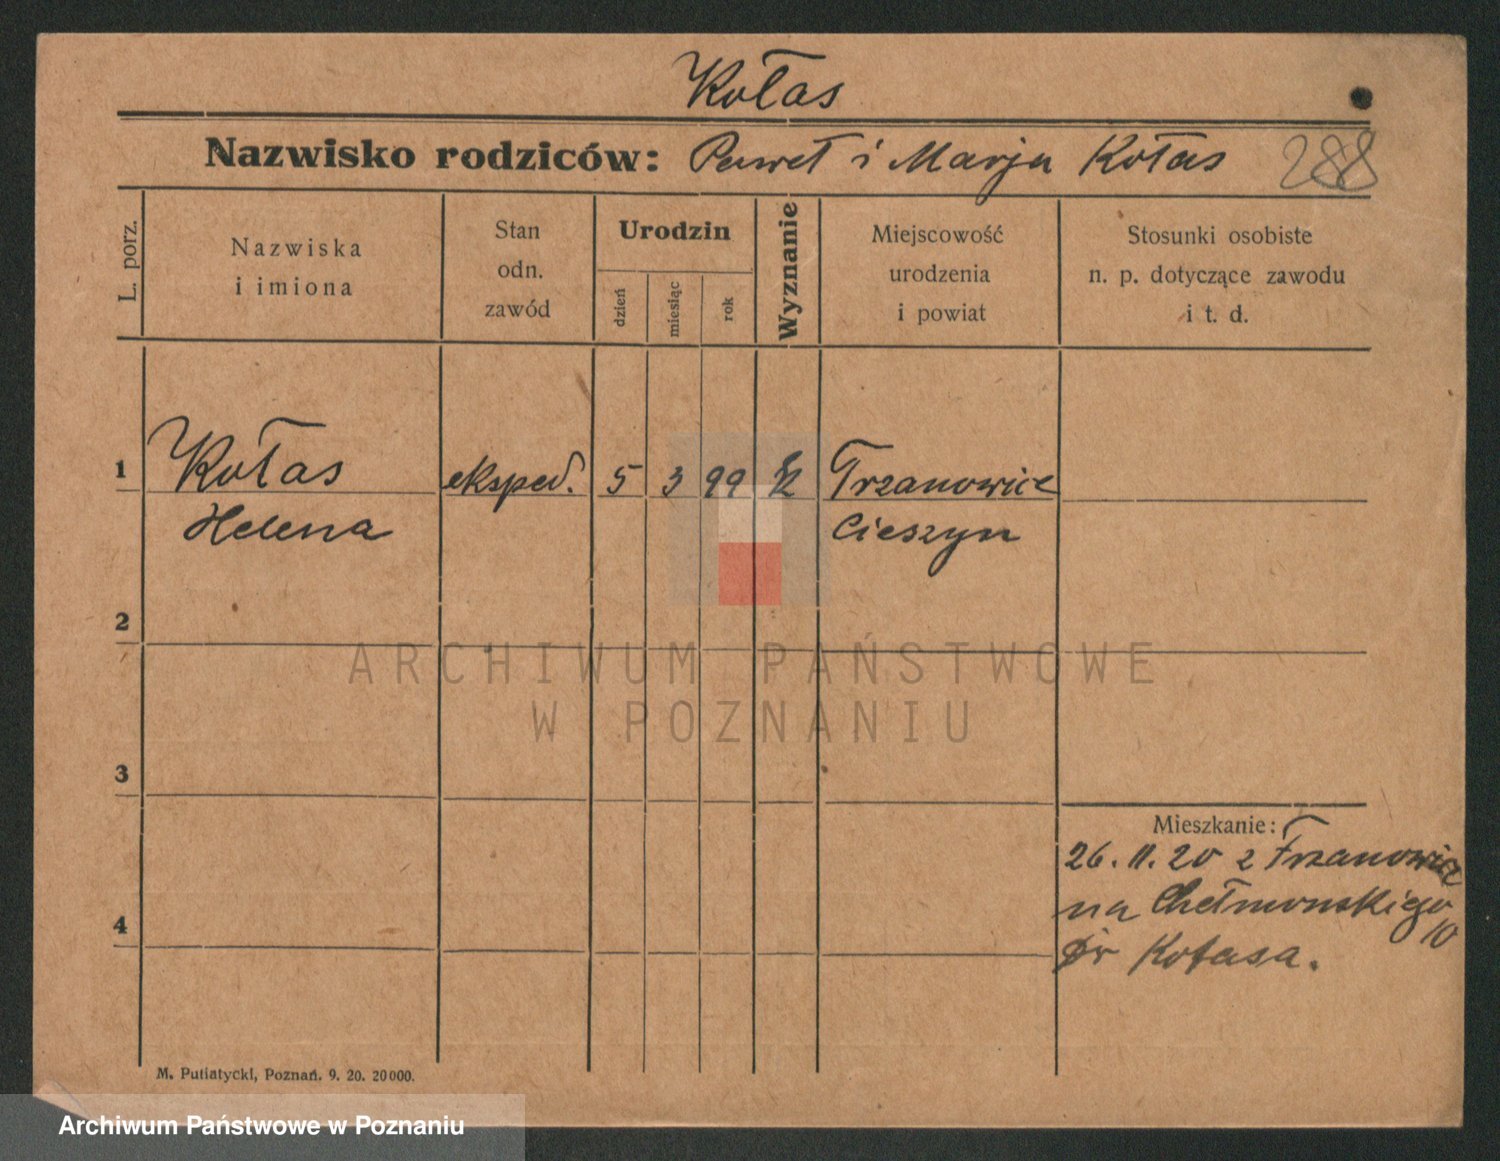 Kołas
Nazwisko rodziców: Paweł i Marja Kołas 288
L. porz.
Nazwiska
i imiona
Stan
odn.
zawód
Urodzin
dzień
miesiąc
rok
Wyznanie
Miejscowość
urodzenia
i powiat
Stosunki osobiste
n. p. dotyczące zawodu
i t. d.
1 Kołas eksped. 5 3 99 k Trzanowice
Helena Cieszyn
2
ARCHIWUM PAŃSTWOWE
W POZNANIU
3
Mieszkanie:
26. 11. 20 z Trzanowice
na Chełmonskiego
10
4
Kołasa.
M. Putiatycki, Poznań. 9. 20. 20000.
Archiwum Państwowe w Poznaniu